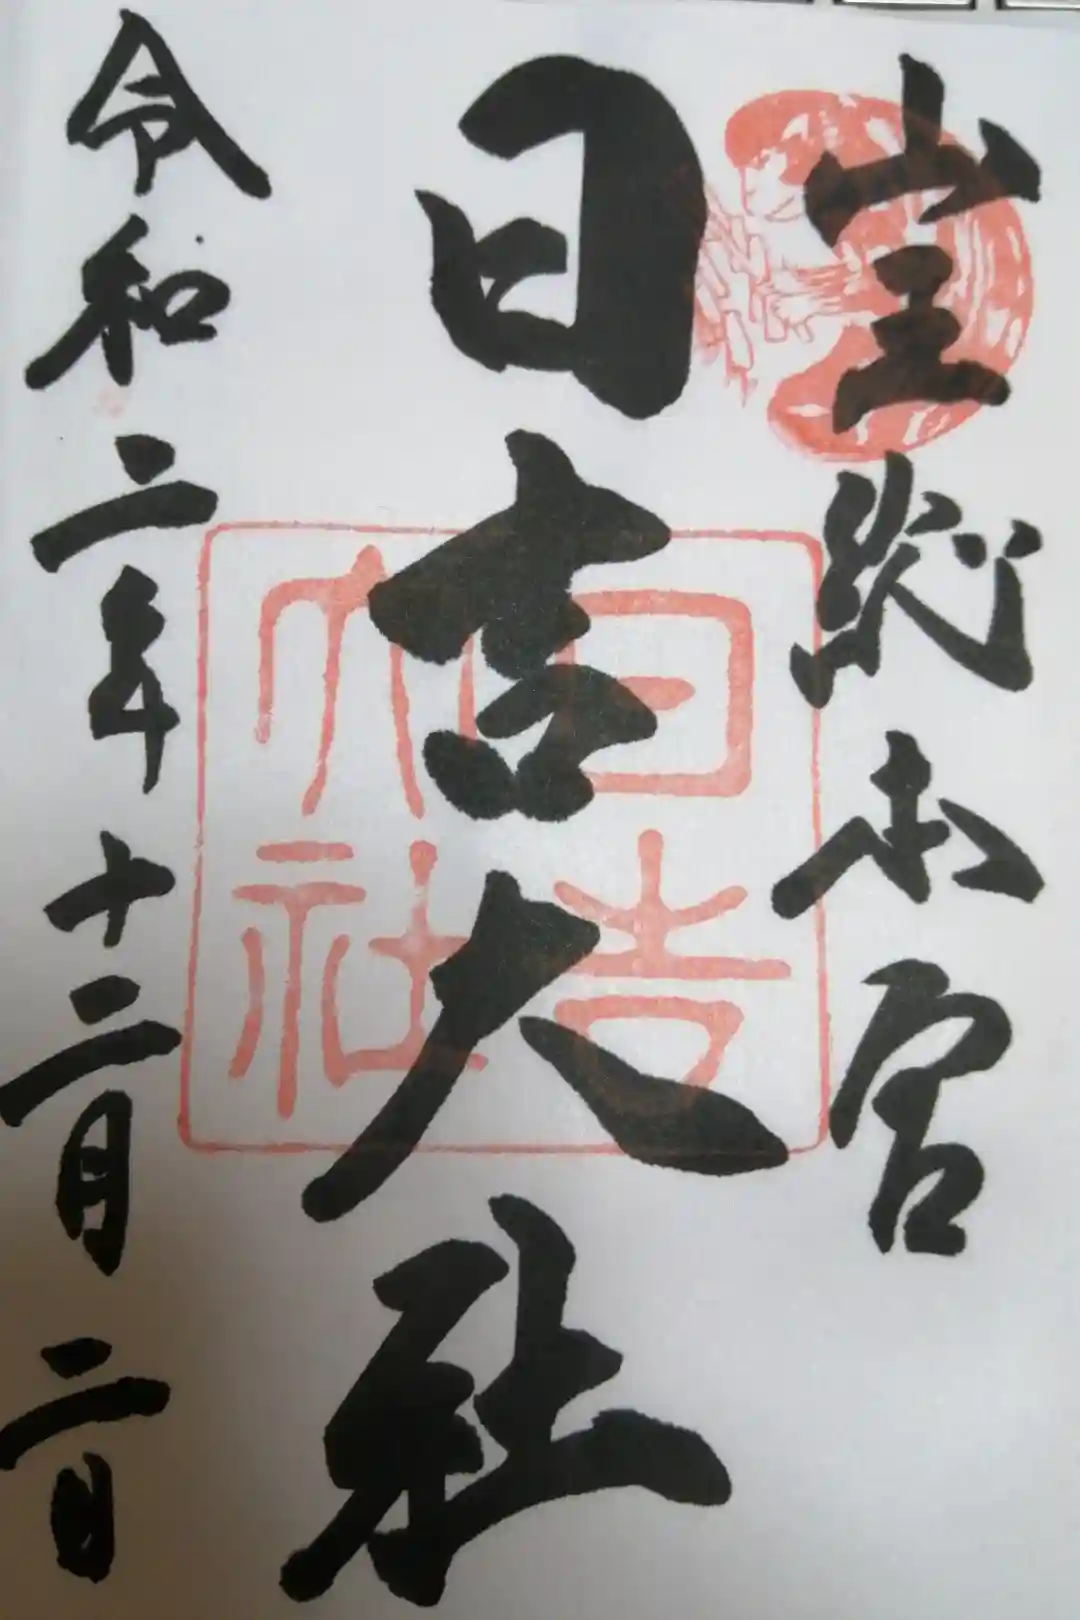 山王総本宮
日吉大社
令和二年十二月二日
日吉
大社